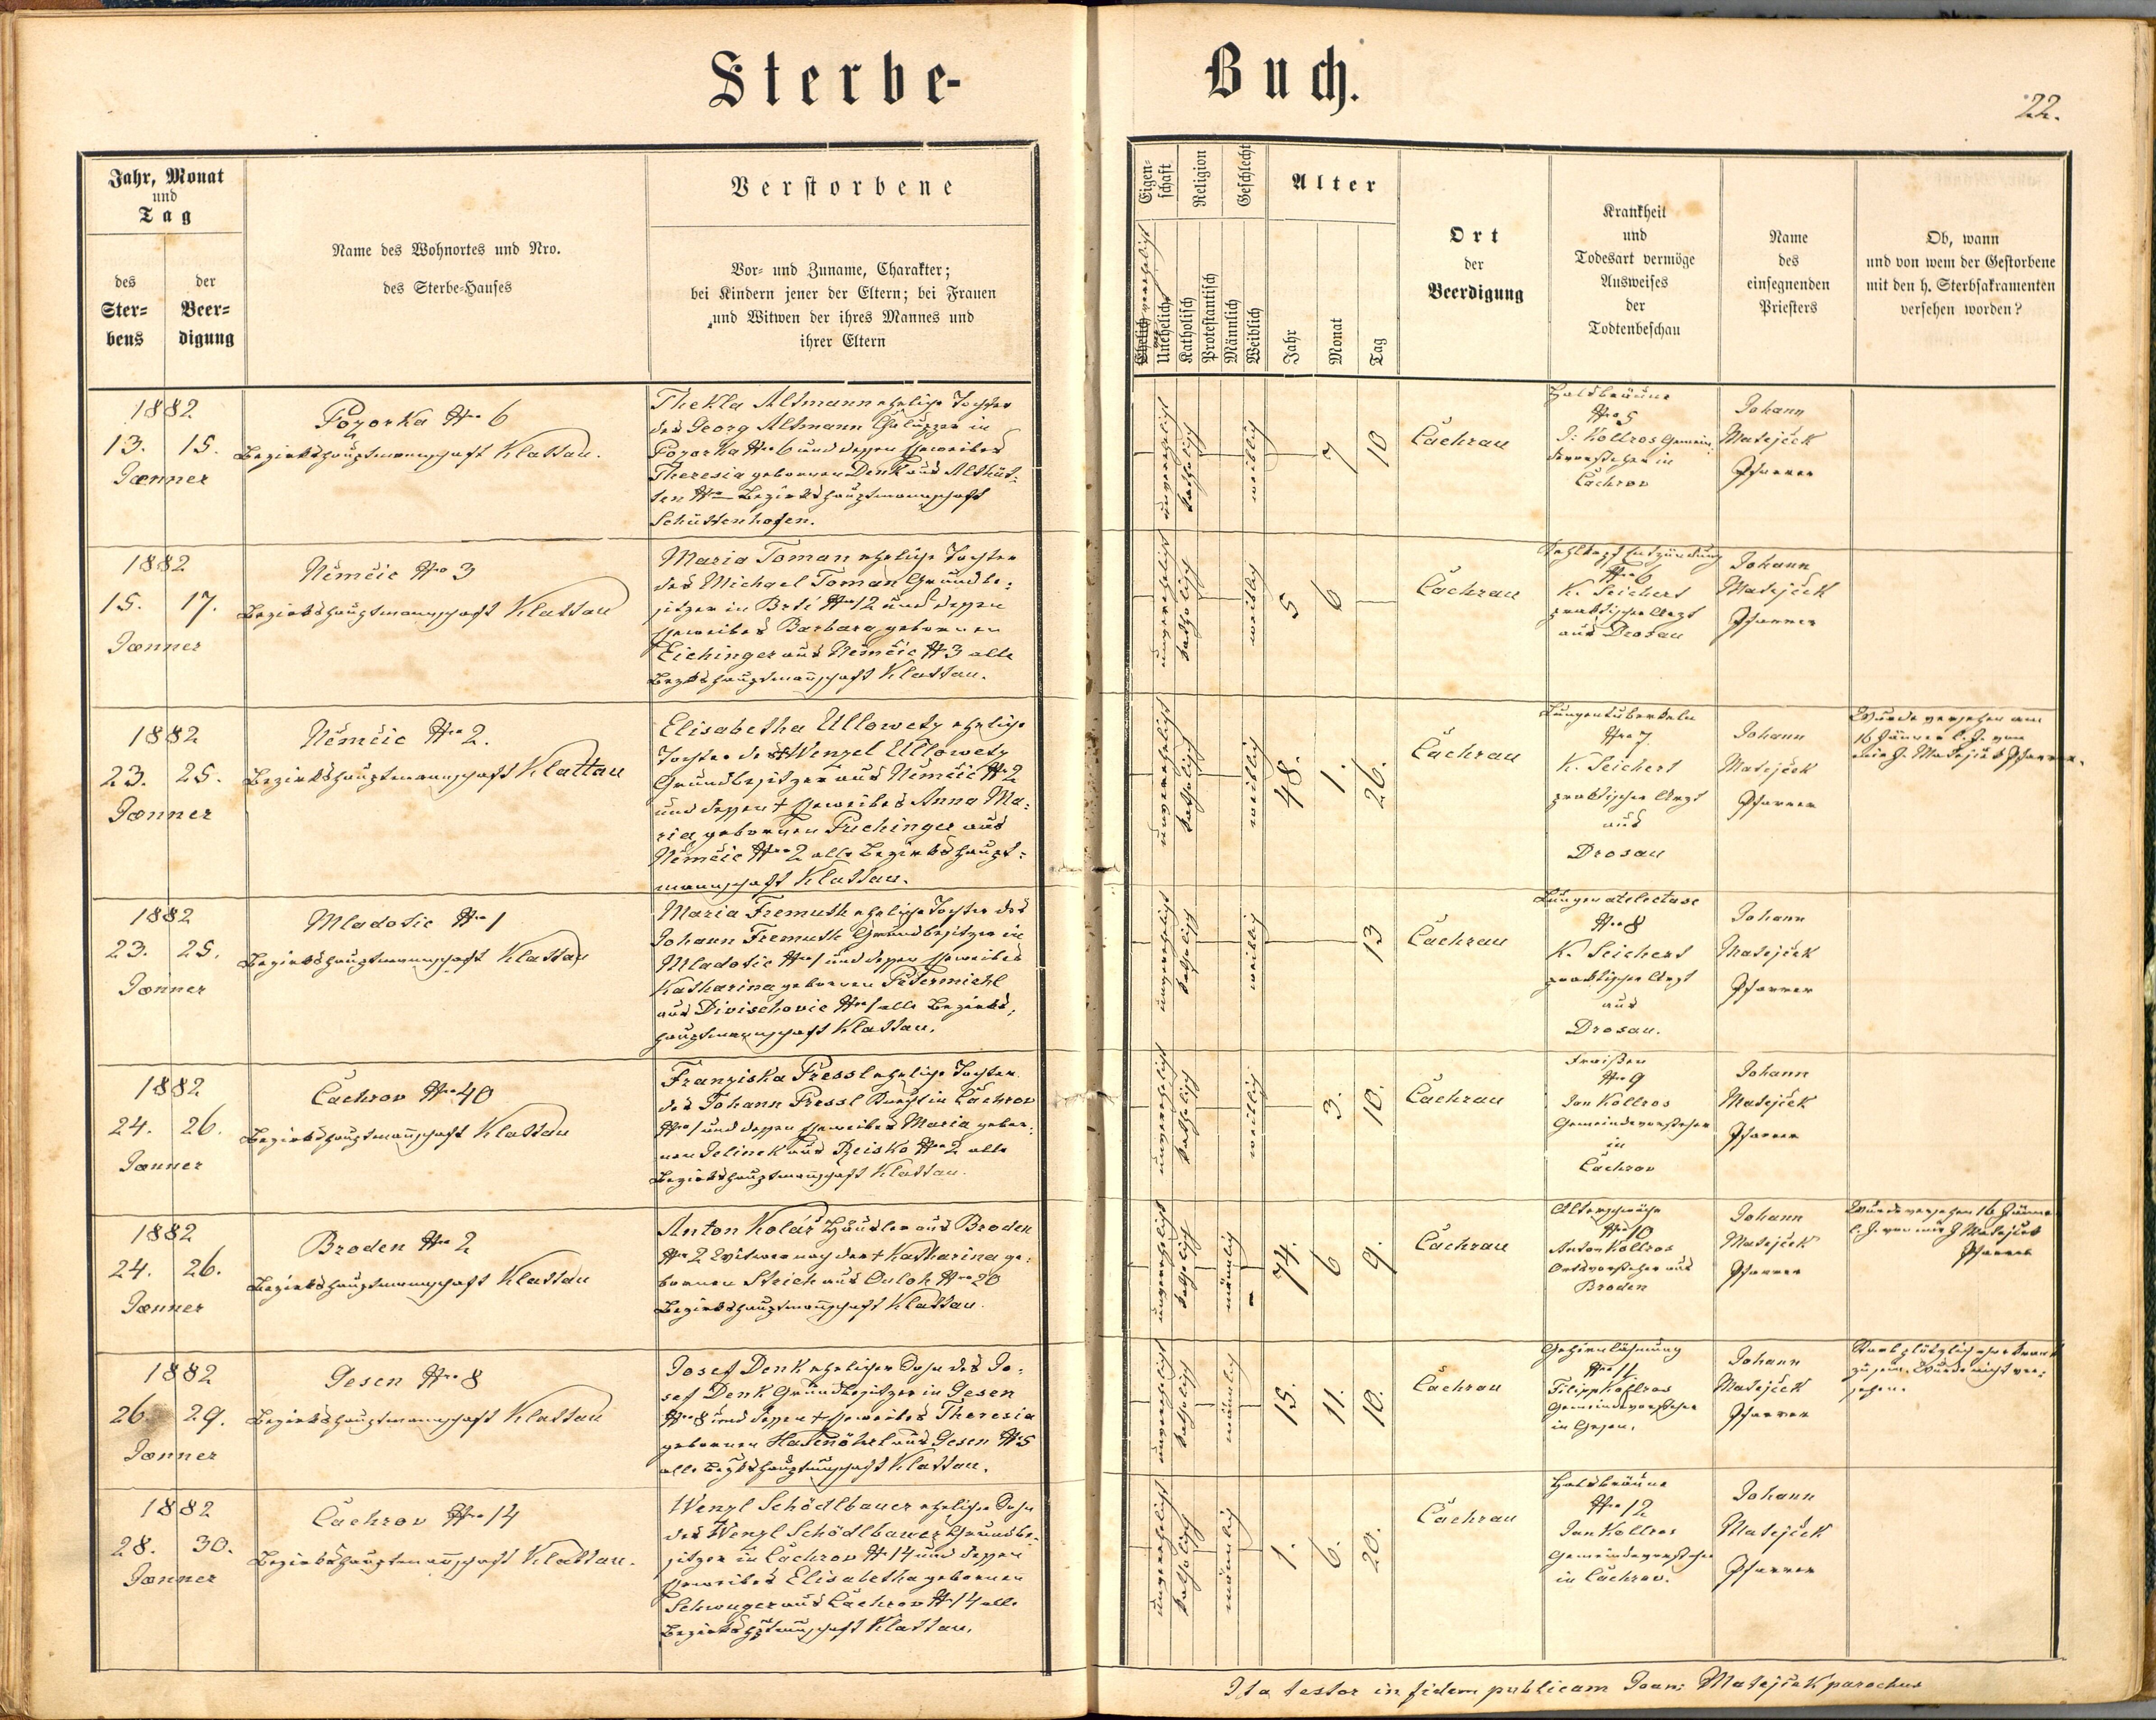 Sterbe-
Buch.
22.
Jahr, Monat
und
Tag
des
Ster-
bens
der
Beer-
digung
Name des Wohnortes und Nro.
des Sterbe-Hauses
Verstorbene
Vor- und Zuname, Charakter;
bei Kindern jener der Eltern; bei Frauen
und Witwen der ihres Mannes und
ihrer Eltern
Eigen-
schaft
Religion
Geschlecht
Ehelich verehelicht
Unehelich
Katholisch
Protestantisch
Männlich
Weiblich
Alter
Jahr
Monat
Tag
Ort
der
Beerdigung
Krankheit
und
Todesart vermöge
Ausweises
der
Todtenbeschau
Name
des
einsegnenden
Priesters
Ob, wann
und von wem der Gestorbene
mit den h. Sterbsakramenten
versehen worden?
1882
13. 15.
Jænner
Pozorka Nro 6
Bezirkshauptmannschaft Klattau.
Thekla Altmann eheliche Tochter
des Georg Altmann in
Pozorka Nro 6 und dessen Eheweibes
Theresia gebornen Denk aus Althüt-
ten Nro Bezirkshauptmannschaft
Schüttenhofen.
unverehelicht
katholisch
weiblich
7
10
Čachrau
Halsbräune
Nro 5
J: Kollros Gemein-
devorsteher in
Čachrov
Johann
Matejček
Pfarrer
1882
15. 17.
Jænner
Němčic Nro 3
Bezirkshauptmannschaft Klattau
Maria Toman eheliche Tochter
des Michael Toman Grundbe-
sitzer in Brtí Nro 12 und dessen
Eheweibes Barbara gebornen
Eichinger aus Němčic N 3 alle
Bezirkshauptmannschaft Klattau.
unverehelicht
katholisch
weiblich
5
6
Čachrau
Kehlkopf Entzündung
Nro 6
K. Seichert
praktischer Arzt
aus Drosau
Johann
Matejček
Pfarrer
1882
23. 25.
Jænner
Němčic Nro 2.
Bezirkshauptmannschaft Klattau
Elisabetha Ullowetz eheliche
Tochter des † Wenzel Ullowetz
Grundbesitzer aus Němčic N 2
und dessen † Eheweibes Anna Ma-
ria gebornen Puchinger aus
Němčic Nro 2 alle Bezirkshaupt-
mannschaft Klattau.
unverehelicht
katholisch
weiblich
48.
1.
26.
Čachrau
Lungentuberkeln
Nro 7
K. Seichert
praktischer Arzt
aus
Drosau
Johann
Matejček
Pfarrer
Wurde versehen am
16 Jänner l. J. von
mir J. Matejček Pfarrer.
1882
23. 25.
Jænner
Mladotic Nro 1
Bezirkshauptmannschaft Klattau
Maria Fremuth eheliche Tochter des
Johann Fremuth Grundbesitzer in
Mladotic Nro 1 und dessen Eheweibes
Katharina gebornen Petermichl
aus Divischovic Nro 1 alle Bezirks-
hauptmannschaft Klattau.
unverehelicht
katholisch
weiblich
13
Čachrau
Lungenatelectase
Nro 8
K. Seichert
praktischer Arzt
aus
Drosau.
Johann
Matejček
Pfarrer
1882
24. 26.
Jænner
Čachrov Nro 40
Bezirkshauptmannschaft Klattau
Franziska Pressl eheliche Tochter
des Johann Pressl Knecht in Čachrov
Nro 1 und dessen Eheweibes Maria gebor-
nen Jelinek aus Nro 2 alle
Bezirkshauptmannschaft Klattau.
unverehelicht
katholisch
weiblich
3.
10.
Čachrau
Fraißen
Nro 9
Jan Kollros
Gemeindevorsteher
in
Čachrov
Johann
Matejček
Pfarrer
1882
24. 26.
Jænner
Broden Nro 2
Bezirkshauptmannschaft Klattau
Anton Kolář Häusler aus Broden
Nro 2 Witwer nach der † Katharina ge-
bornen Strich aus Nro 20
Bezirkshauptmannschaft Klattau.
katholisch
männlich
74.
6
9.
Čachrau
Altersschwäche
Nro 10
Anton Kollros
Ortsvorsteher aus
Broden
Johann
Matejček
Pfarrer
Wurde versehen 16 Jänner
l. J. von mir J Matejček
Pfarrer
1882
26. 29.
Jænner
Gesen Nro 8
Bezirkshauptmannschaft Klattau
Josef Denk ehelicher Sohn des Jo-
sef Denk Grundbesitzer in Gesen
Nro 8 und dessen † Eheweibes Theresia
gebornen Hasenöhrl aus Gesen N 5
alle Bezirkshauptmannschaft Klattau.
unverehelicht
katholisch
männlich
15.
11.
10.
Čachrau
Gehirnlähmung
Nro 11.
Filipp Kollros
Gemeindevorsteher
in Gesen.
Johann
Matejček
Pfarrer
Starb plötzlich ohne krank
zu sein. Wurde nicht ver-
sehen.
1882
28. 30.
Jænner
Čachrov Nro 14
Bezirkshauptmannschaft Klattau.
Wenzl Schödlbauer ehelicher Sohn
des Wenzl Schödlbauer Grundbe-
sitzer in Čachrov N 14 und dessen
Eheweibes Elisabetha gebornen
Schwuger aus Čachrov N 14 alle
Bezirkshptmannschaft Klattau.
unverehelicht
katholisch
männlich
1.
6.
20.
Čachrau
Halsbräune
Nro 12
Jan Kollros
Gemeindevorsteher
in Čachrov.
Johann
Matejček
Pfarrer
Ita testor in fidem publicam Joan: Matejček parochus